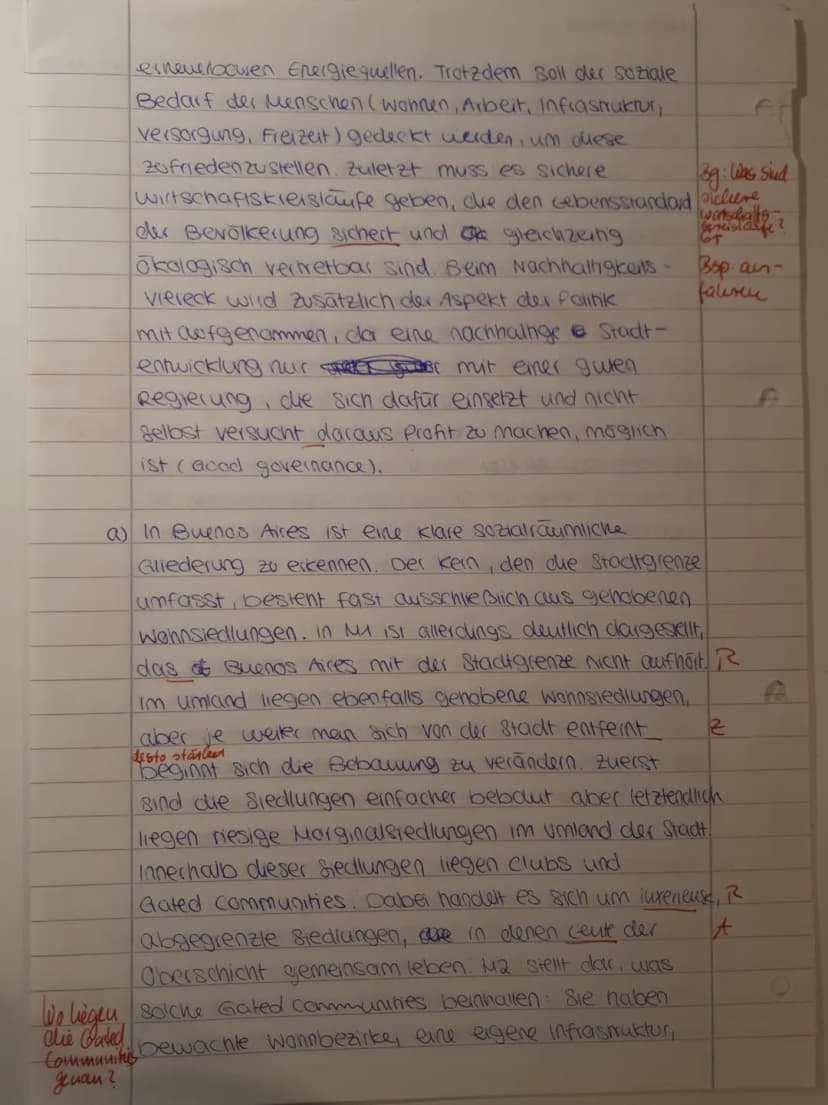 erneuerbaren Energiequellen. Trotzdem soll der soziale
Bedarf der Menschen (Wohnen, Arbeit, Infrastruktur,
Versorgung, Freizeit) gedeckt werden, um diese
zufriedenzustellen. Zuletzt muss es sichere
Wirtschaftskreisläufe geben, die den Lebensstandard
der Bevölkerung sichert und gleichzeitig
ökologisch vertretbar sind. Beim Nachhaltigkeits-
viereck wird zusätzlich der Aspekt der Politik
mit aufgenommen, da eine nachhaltige Stadt-
entwicklung nur mit einer guten
Regierung, die sich dafür einsetzt und nicht
selbst versucht daraus Profit zu machen, möglich
ist (Good governance).
Bg: Was sind
sichere
Wirtschafts-
kreisläufe?
Bsp. an-
führen
a) In Buenos Aires ist eine klare sozialräumliche
Gliederung zu erkennen. Der Kern, den die Stadtgrenze
umfasst, besteht fast ausschließlich aus gehobenen
Wohnsiedlungen. In M1 ist allerdings deutlich dargestellt,
das Buenos Aires mit der Stadtgrenze nicht aufhört. R
Im Umland liegen ebenfalls gehobene Wohnsiedlungen,
aber je weiter man sich von der Stadt entfernt Z
desto stärker
beginnt sich die Bebauung zu verändern. Zuerst
sind die Siedlungen einfacher bebaut aber letztendlich
liegen riesige Marginalsiedlungen im Umland der Stadt.
Innerhalb dieser Siedlungen liegen Clubs und
Gated Communities. Dabei handelt es sich um luxereuse, R
abgegrenzte Siedlungen, in denen Leute der A
Oberschicht gemeinsam leben. M2 stellt dar, was
solche Gated Communities beinhalten: Sie haben
bewachte Wohnbezirke, eine eigene Infrastruktur,
Wo liegen
die Gated
Communities
genau?